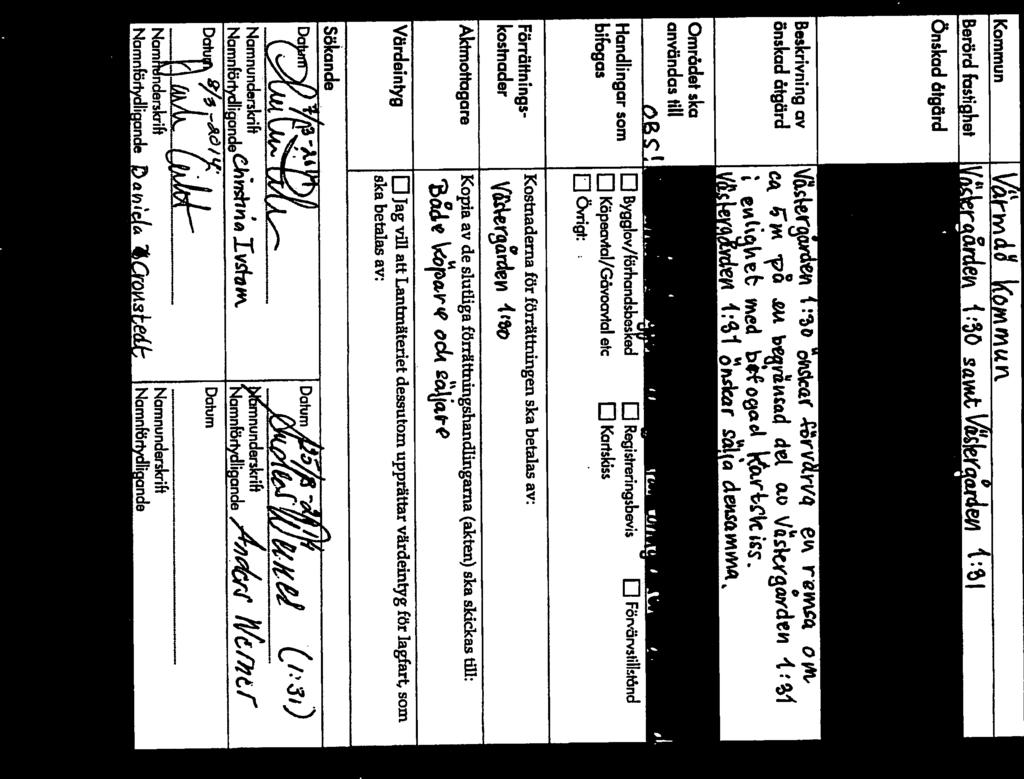 Kommun
Värmdö kommun
Berörd fastighet
Västergården 1:30 samt Västergården 1:31
Önskad åtgärd
Beskrivning av
önskad åtgärd
Västergården 1:30 önskar förvärva en remsa om
ca 5m på en begränsad del av Västergården 1:31
i enlighet med bifogad kartskiss.
Västergården 1:31 önskar sälja densamma.
Området ska
användas till
OBS!
Handlingar som
bifogas
Bygglov/förhandsbesked
Registreringsbevis
Förvärvstillstånd
Köpeavtal/Gåvoavtal etc
Kartskiss
Övrigt:
Förrättnings-
kostnader
Kostnaderna för förrättningen ska betalas av:
Västergården 1:30
Aktmottagare
Kopia av de slutliga förrättningshandlingarna (akten) ska skickas till:
Både köpare och säljare
Värdeintyg
Jag vill att Lantmäteriet dessutom upprättar värdeintyg för lagfart, som
ska betalas av:
Sökande
Datum 7/3-2014
Namnunderskrift
Namnförtydligande Christina Ivstam
Datum 8/3-2014
Namnunderskrift
Namnförtydligande Daniela Cronstedt
Datum
Anders Werner (1:31)
Namnunderskrift
Namnförtydligande Anders Werner
Datum
Namnunderskrift
Namnförtydligande